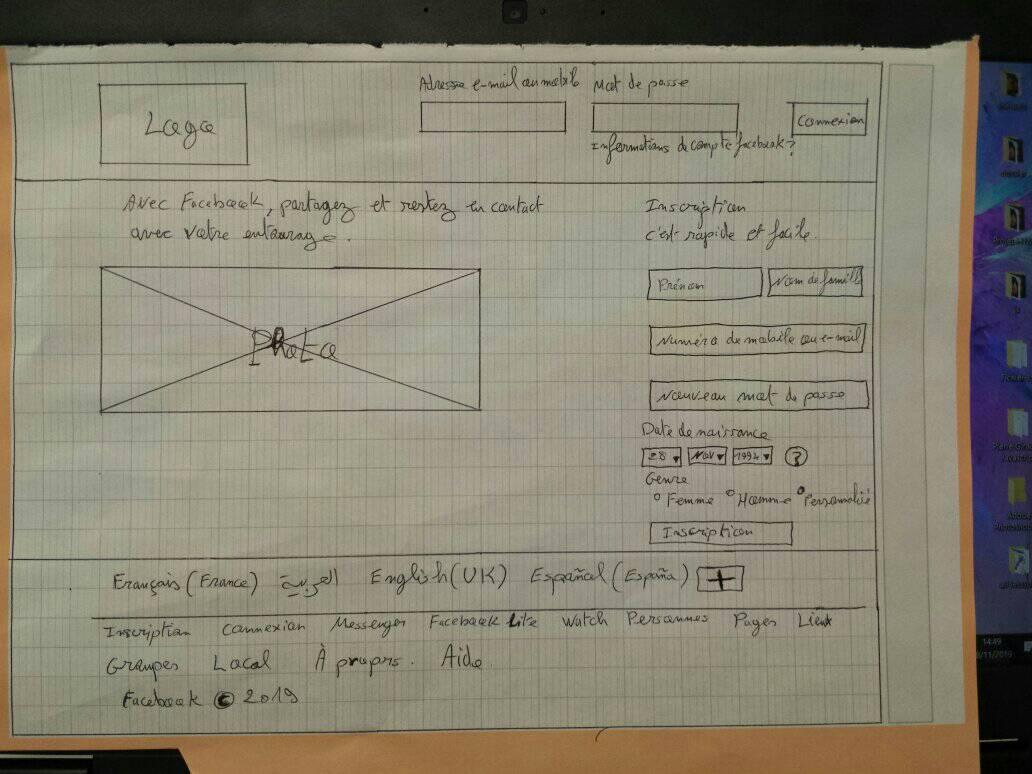 Adresse e-mail ou mobile Mot de passe
Logo
Connexion
Informations de compte facebook ?
Avec Facebook, partagez et restez en contact
avec votre entourage.
Inscription
c'est rapide et facile.
Prénom Nom de famille
Photo
Numéro de mobile ou e-mail
Nouveau mot de passe
Date de naissance
28 ▾ Nov ▾ 1994 ▾ ?
Genre
Femme Homme Personnalisé
Inscription
Français (France) العربية English (UK) Español (España) +
Inscription Connexion Messenger Facebook Lite Watch Personnes Pages Lieux
Groupes Local À propos. Aide
Facebook © 2019
14:49